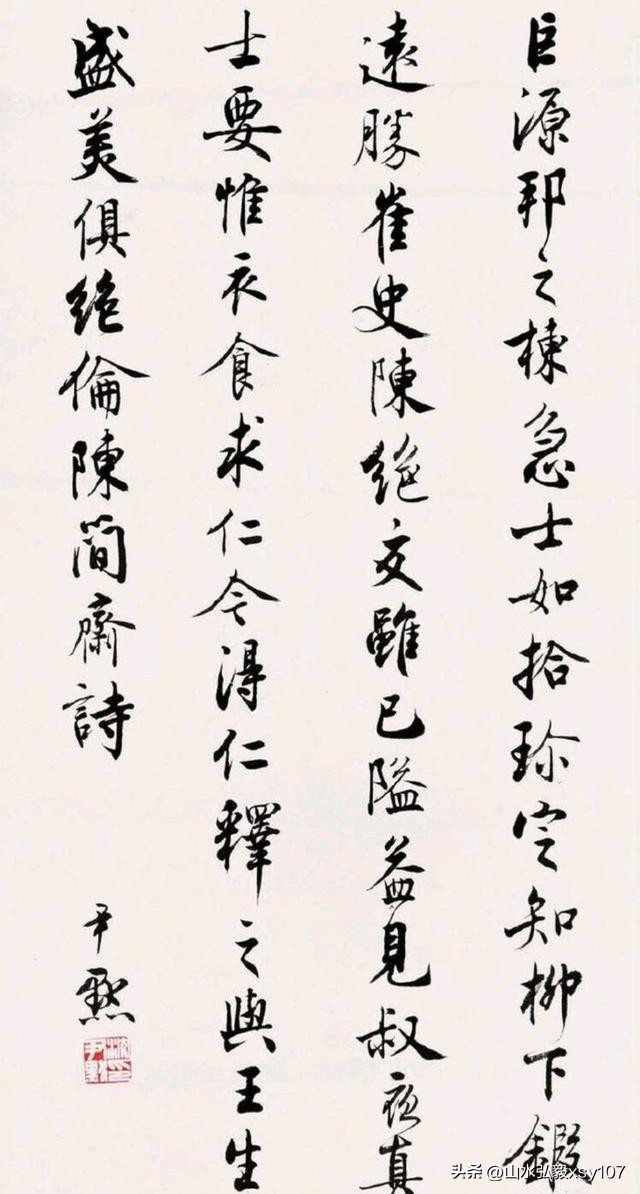 巨源邦之棟急士如拾珍定知柳下鍛
遠勝崔史陳絕交雖已隘益見叔夜真
士要惟衣食求仁今得仁釋之與王生
盛美俱絕倫陳簡齋詩
尹默
沈尹默印
头条 @山水弘毅xsy107